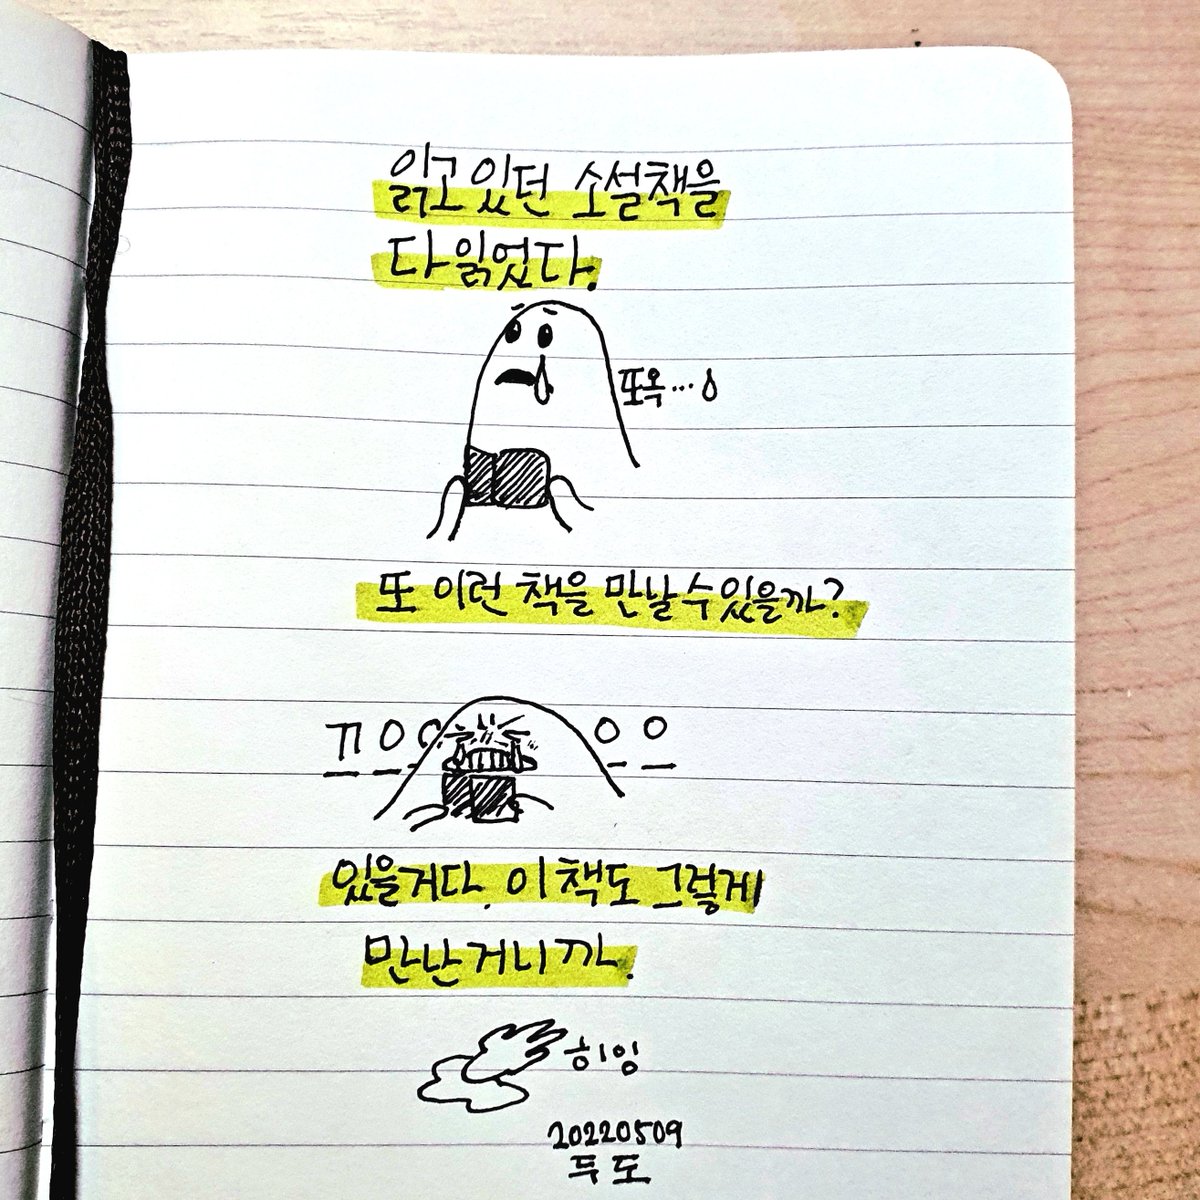 읽고 있던 소설책을
다 읽었다.
또옥...
또 이런 책을 만날 수 있을까?
끄으으으으
있을거다. 이 책도 그렇게
만난거니까.
히잉
20220509
두도